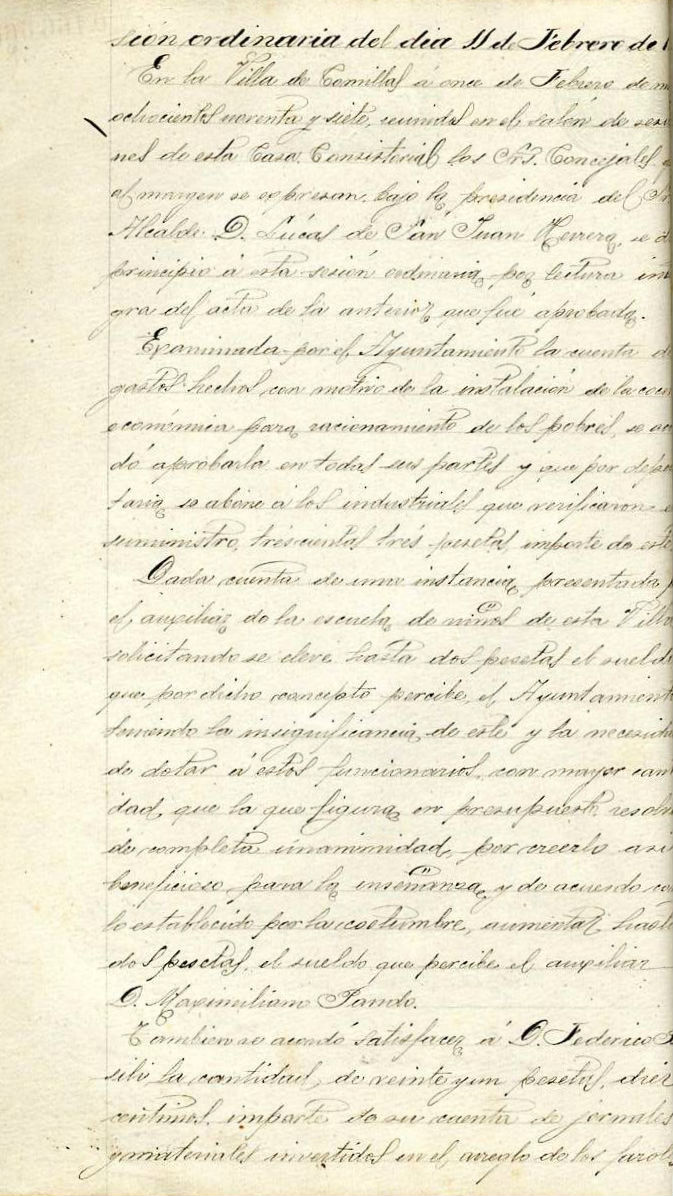 sión ordinaria del dia 11 de Febrero de 1
En la Villa de Comillas á once de Febrero de m
ochocientos noventa y siete, reunidos en el salón de sesio
nes de esta Casa Consistorial los Srs. Concejales q
al margen se expresan, bajo la presidencia del Sr
Alcalde D. Lúcas de San Juan Herrera, se d
principio á esta sesión ordinaria por lectura ínte
gra del acta de la anterior que fué aprobada.
Examinada por el Ayuntamiento la cuenta d
gastos hechos con motivo de la instalación de la coci
económica para racionamiento de los pobres, se acor
dó aprobarla en todas sus partes y que por depo
taria se abone á los industriales que verificaron e
suministro, trescientas trés pesetas, importe de este
Dada cuenta de una instancia presentada p
el auxiliar de la escuela de niños de esta Villa
solicitando se eleve hasta dos pesetas el sueldo
que por dicho concepto percibe, el Ayuntamiento
teniendo la insignificancia de este y la necesida
de dotar á estos funcionarios con mayor canti
dad que la que figura en presupuesto, resolv
de completa unanimidad, por creerlo asi
beneficioso para la enseñanza y de acuerdo con
lo establecido por la costumbre, aumentar hasta
dos pesetas, el sueldo que percibe el auxiliar
D. Maximiliano Pando.
Tambien se acordó satisfacer á D. Federico
la cantidad de veinte y un pesetas, diez
centimos, importe de su cuenta de jornales
y materiales invertidos en el arreglo de los farole